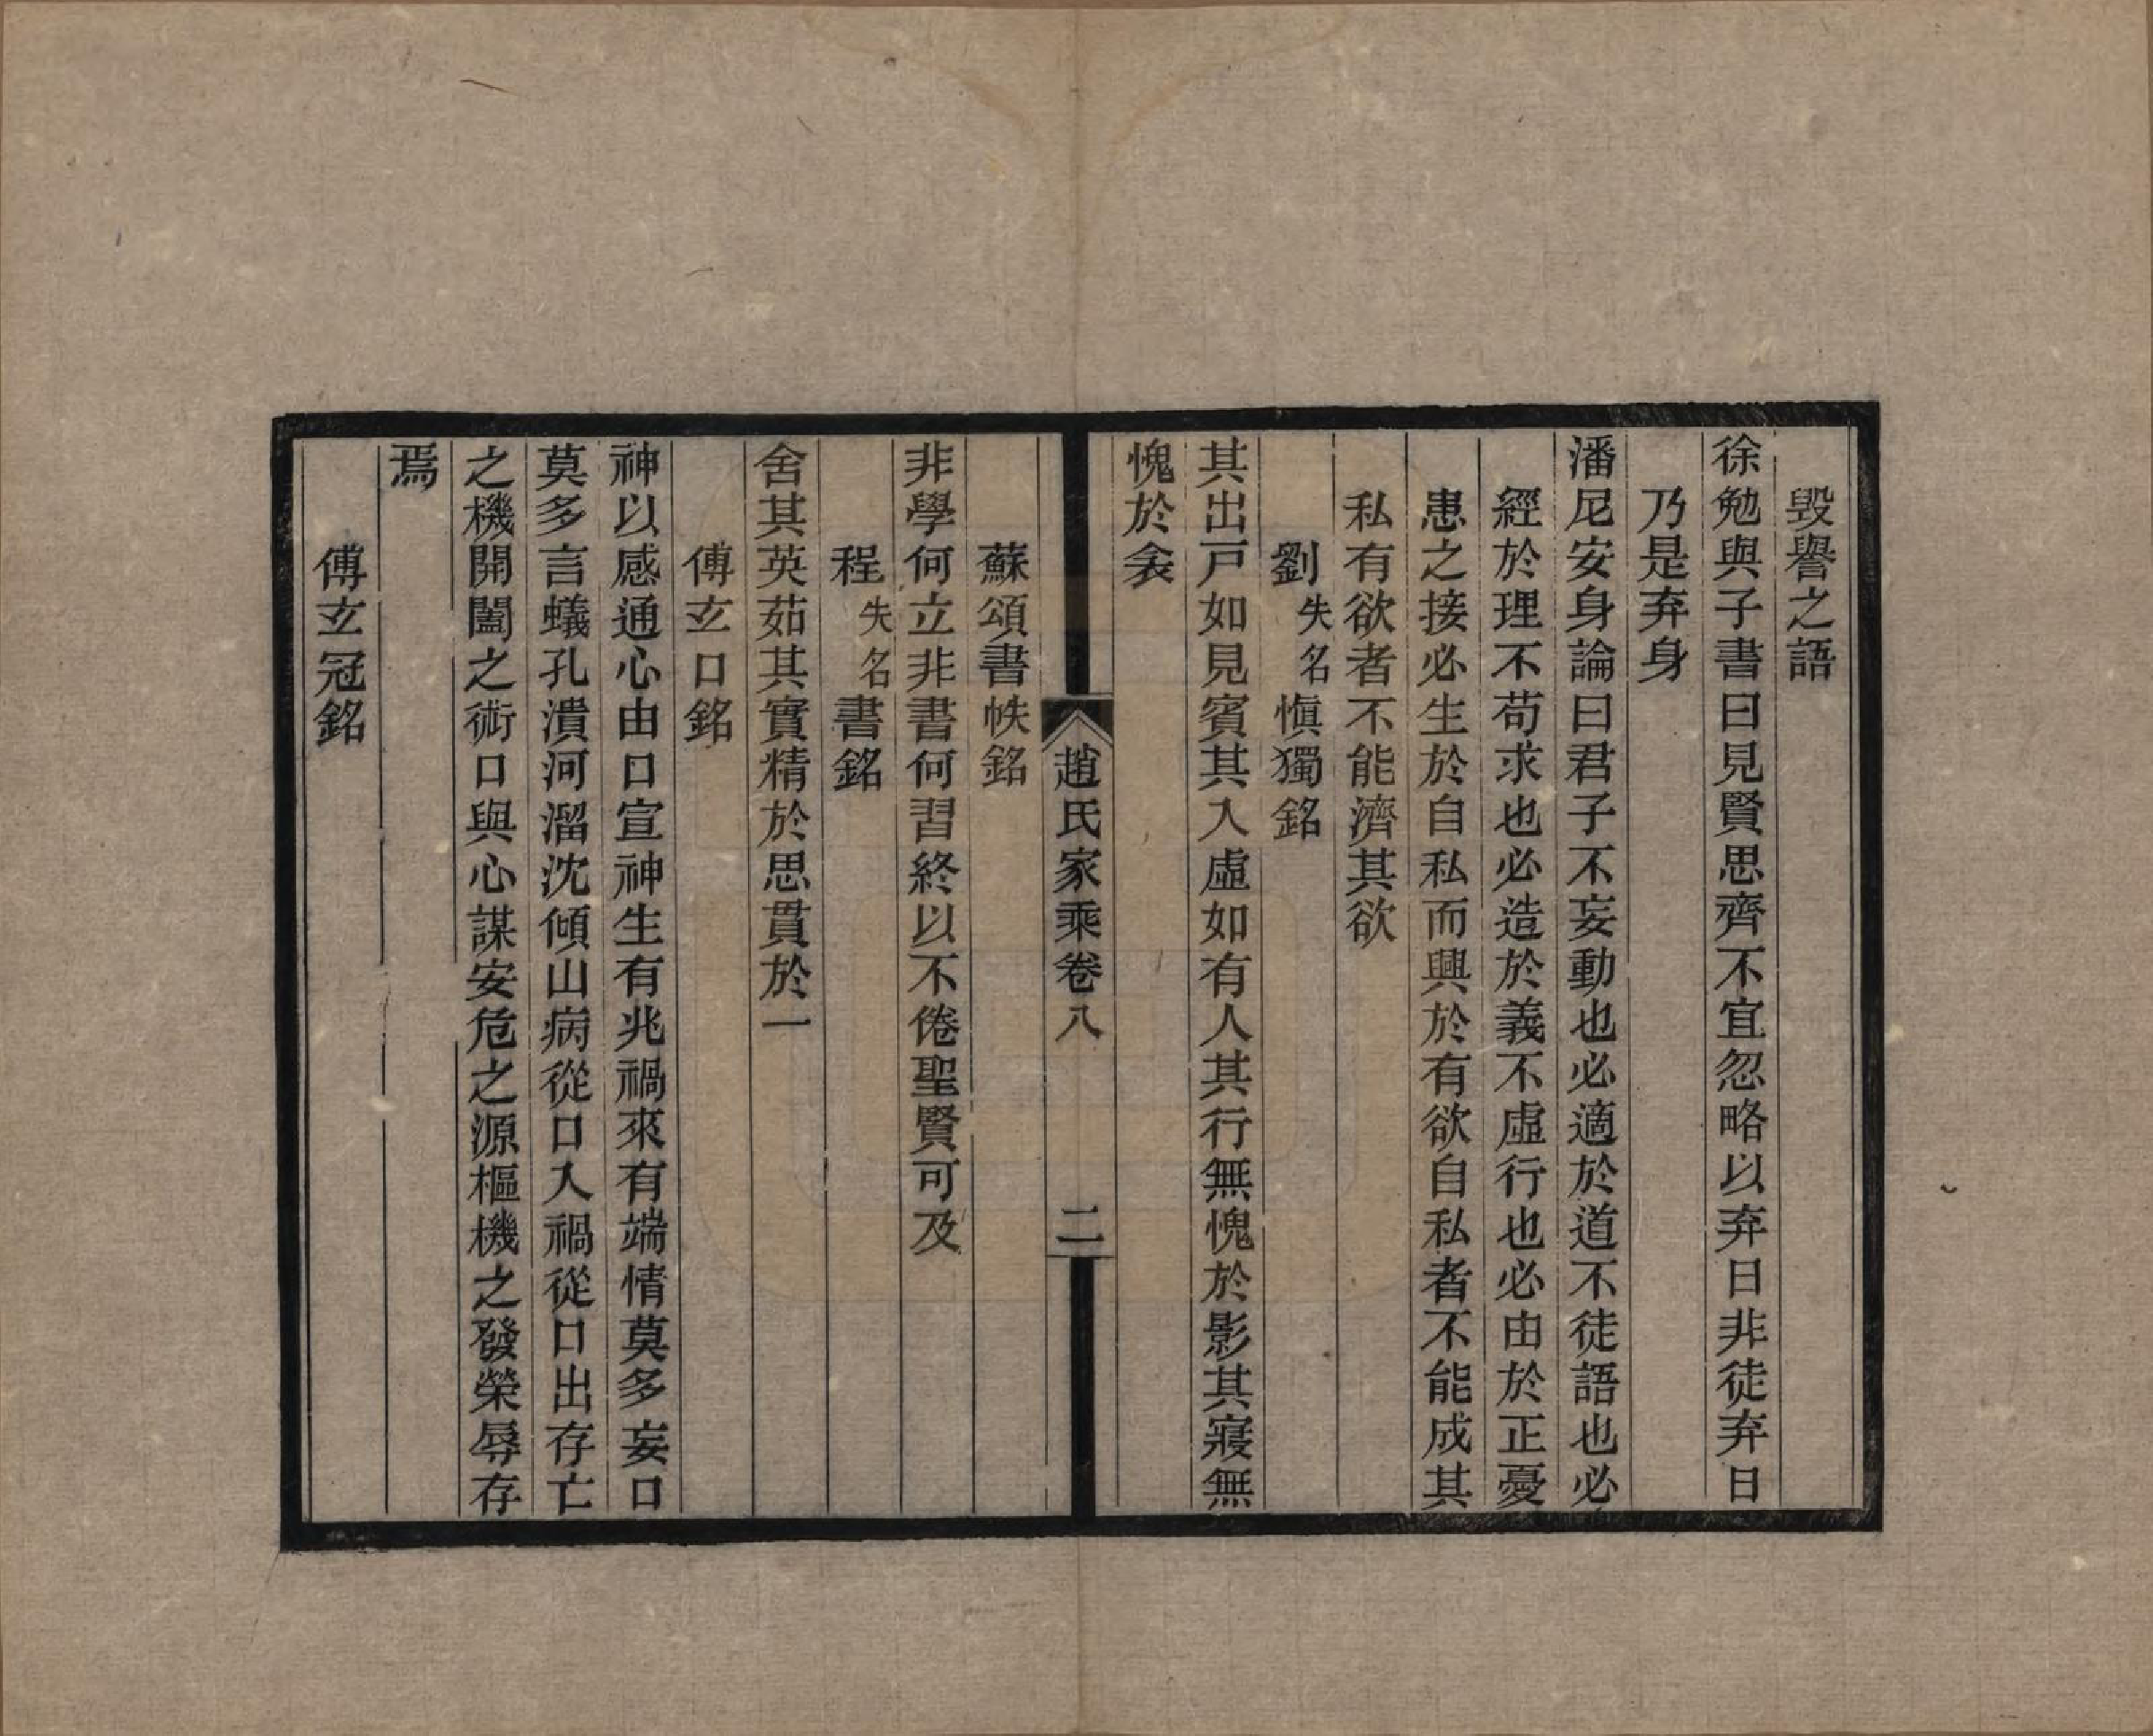 毁譽之語
徐勉與子書曰見賢思齊不宜忽略以弃日非徒弃日
乃是弃身
潘尼安身論曰君子不妄動也必適於道不徒語也必
經於理不苟求也必造於義不虛行也必由於正憂
患之接必生於自私而興於有欲自私者不能成其
私有欲者不能濟其欲
劉失名愼獨銘
其出戸如見賓其入虛如有人其行無愧於影其寢無
愧於衾
趙氏家乘卷八
二
蘇頌書帙銘
非學何立非書何習終以不倦聖賢可及
程失名書銘
舍其英茹其實精於思貫於一
傅玄口銘
神以感通心由口宣神生有兆禍來有端情莫多妄口
莫多言蟻孔潰河溜沈傾山病從口入禍從口出存亡
之機開闔之術口與心謀安危之源樞機之發榮辱存
焉
傅玄冠銘